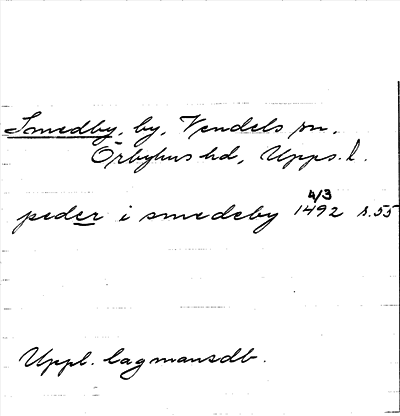 Smedby, by, Vendels sn,
Örbyhus hd, Upps. l.
4/3
peder i smedeby 1492 s. 55
Uppl. lagmansdb.